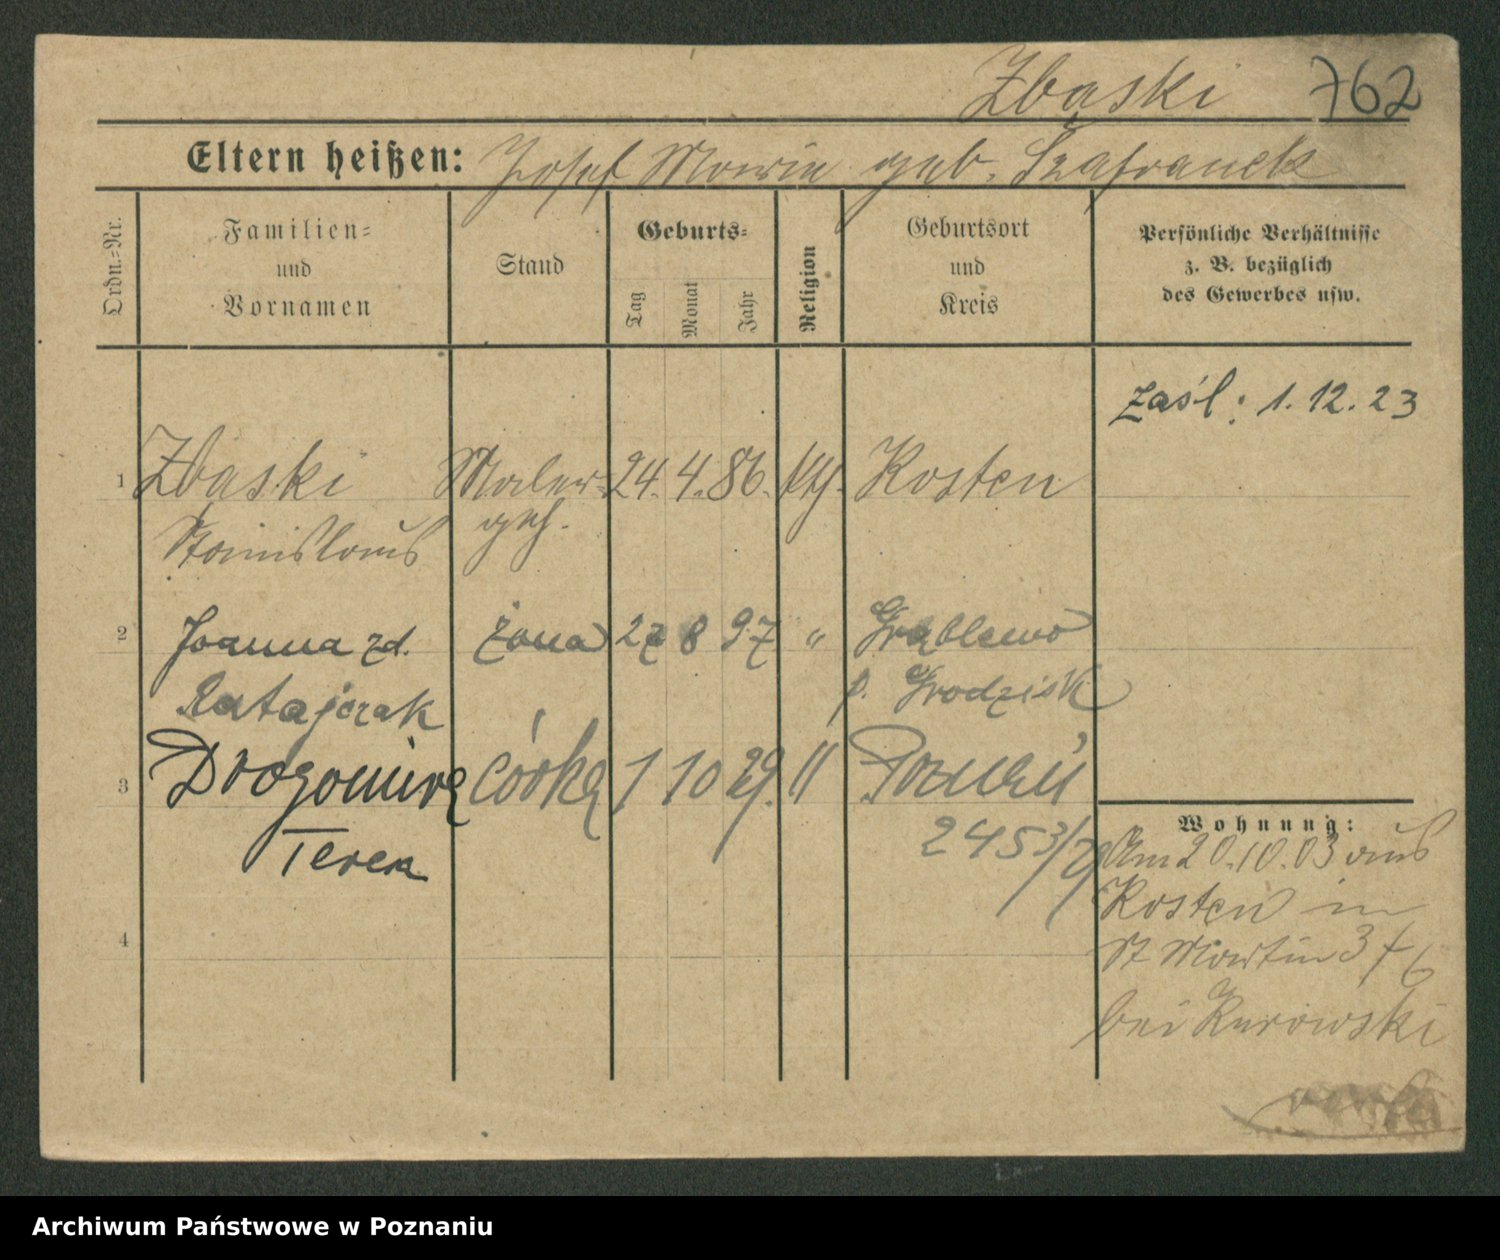 Zbąski 762
Eltern heißen: Josef Maria geb. Szafranek
Ordn.=Nr.
Familien=
und
Vornamen
Stand
Geburts=
Tag
Monat
Jahr
Religion
Geburtsort
und
Kreis
Persönliche Verhältnisse
z. B. bezüglich
des Gewerbes usw.
zaśl: 1.12.23
1 Zbąski Maler= 24. 4. 86. kth. Kosten
Stanislaus geh.
2 Joanna zd. żona 27 8 97 " Grąblewo
Ratajczak p. Grodzisk
3 Drogomira córka 1 10 29. " Poznań
Teresa 2453/29
4
Wohnung:
Am 20.10.03 aus
Kosten in
St Martin 3
bei Kurowski
Archiwum Państwowe w Poznaniu